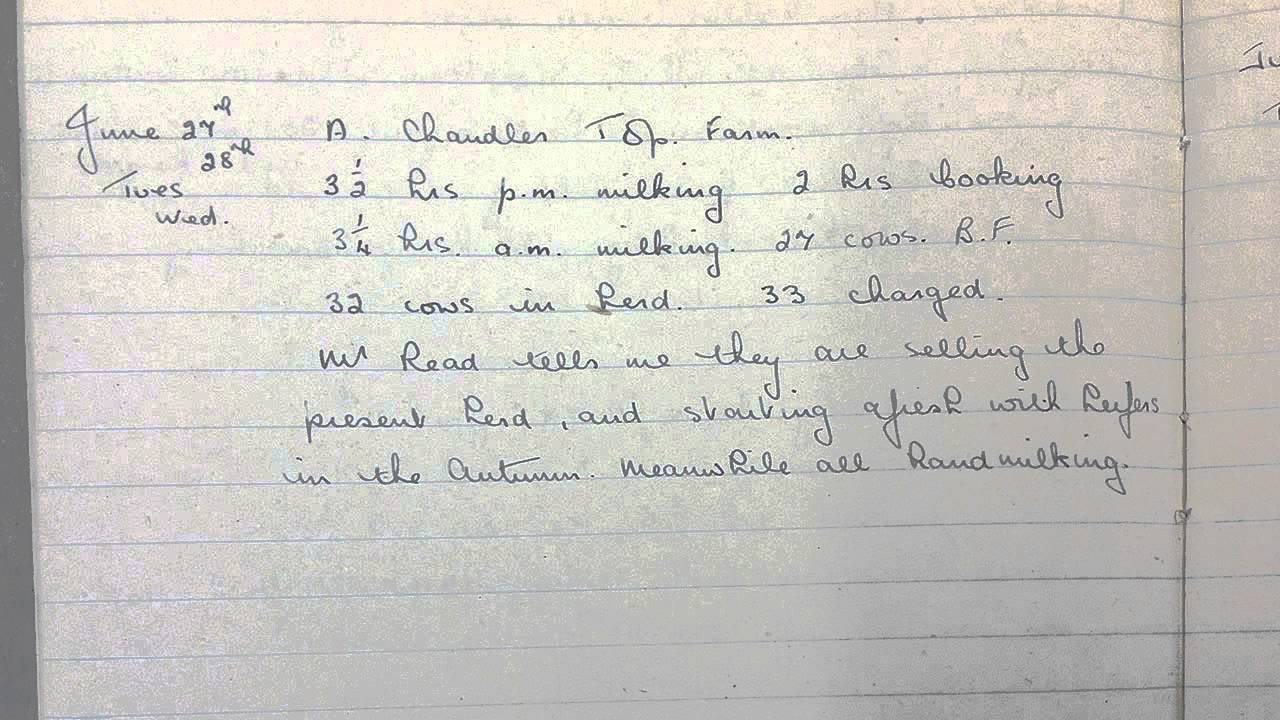 June 27th A. Chandler T Sp. Farm.
28th
Tues 3 1/2 hrs p.m. milking 2 hrs booking
Wed.
3 1/4 hrs. a.m. milking. 27 cows. B.F.
32 cows in herd. 33 charged.
Mr Read tells me they are selling the
present herd, and starting afresh with heifers
in the Autumn. Meanwhile all handmilking.